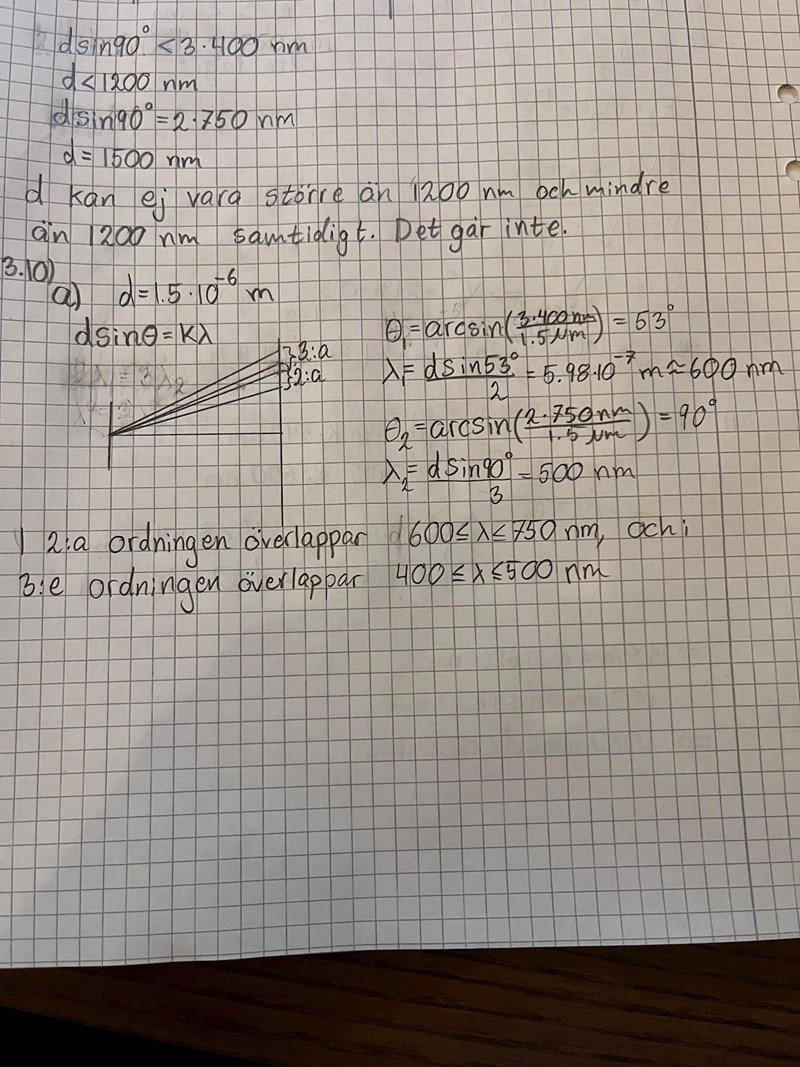 dsin90° < 3·400 nm
d < 1200 nm
dsin90° = 2·750 nm
d = 1500 nm
d kan ej vara större än 1200 nm och mindre
än 1200 nm samtidigt. Det går inte.
3.10)
a) d = 1.5·10⁻⁶ m
dsinθ = Kλ
}3:a
}2:a
θ₁ = arcsin(3·400nm/1.5 μm) = 53°
λ₁ = dsin53°/2 = 5.98·10⁻⁷ m ≈ 600 nm
θ₂ = arcsin(2·750nm/1.5 μm) = 90°
λ₂ = dsin90°/3 = 500 nm
I 2:a ordningen överlappar 600 ≤ λ ≤ 750 nm, och i
3:e ordningen överlappar 400 ≤ λ ≤ 500 nm